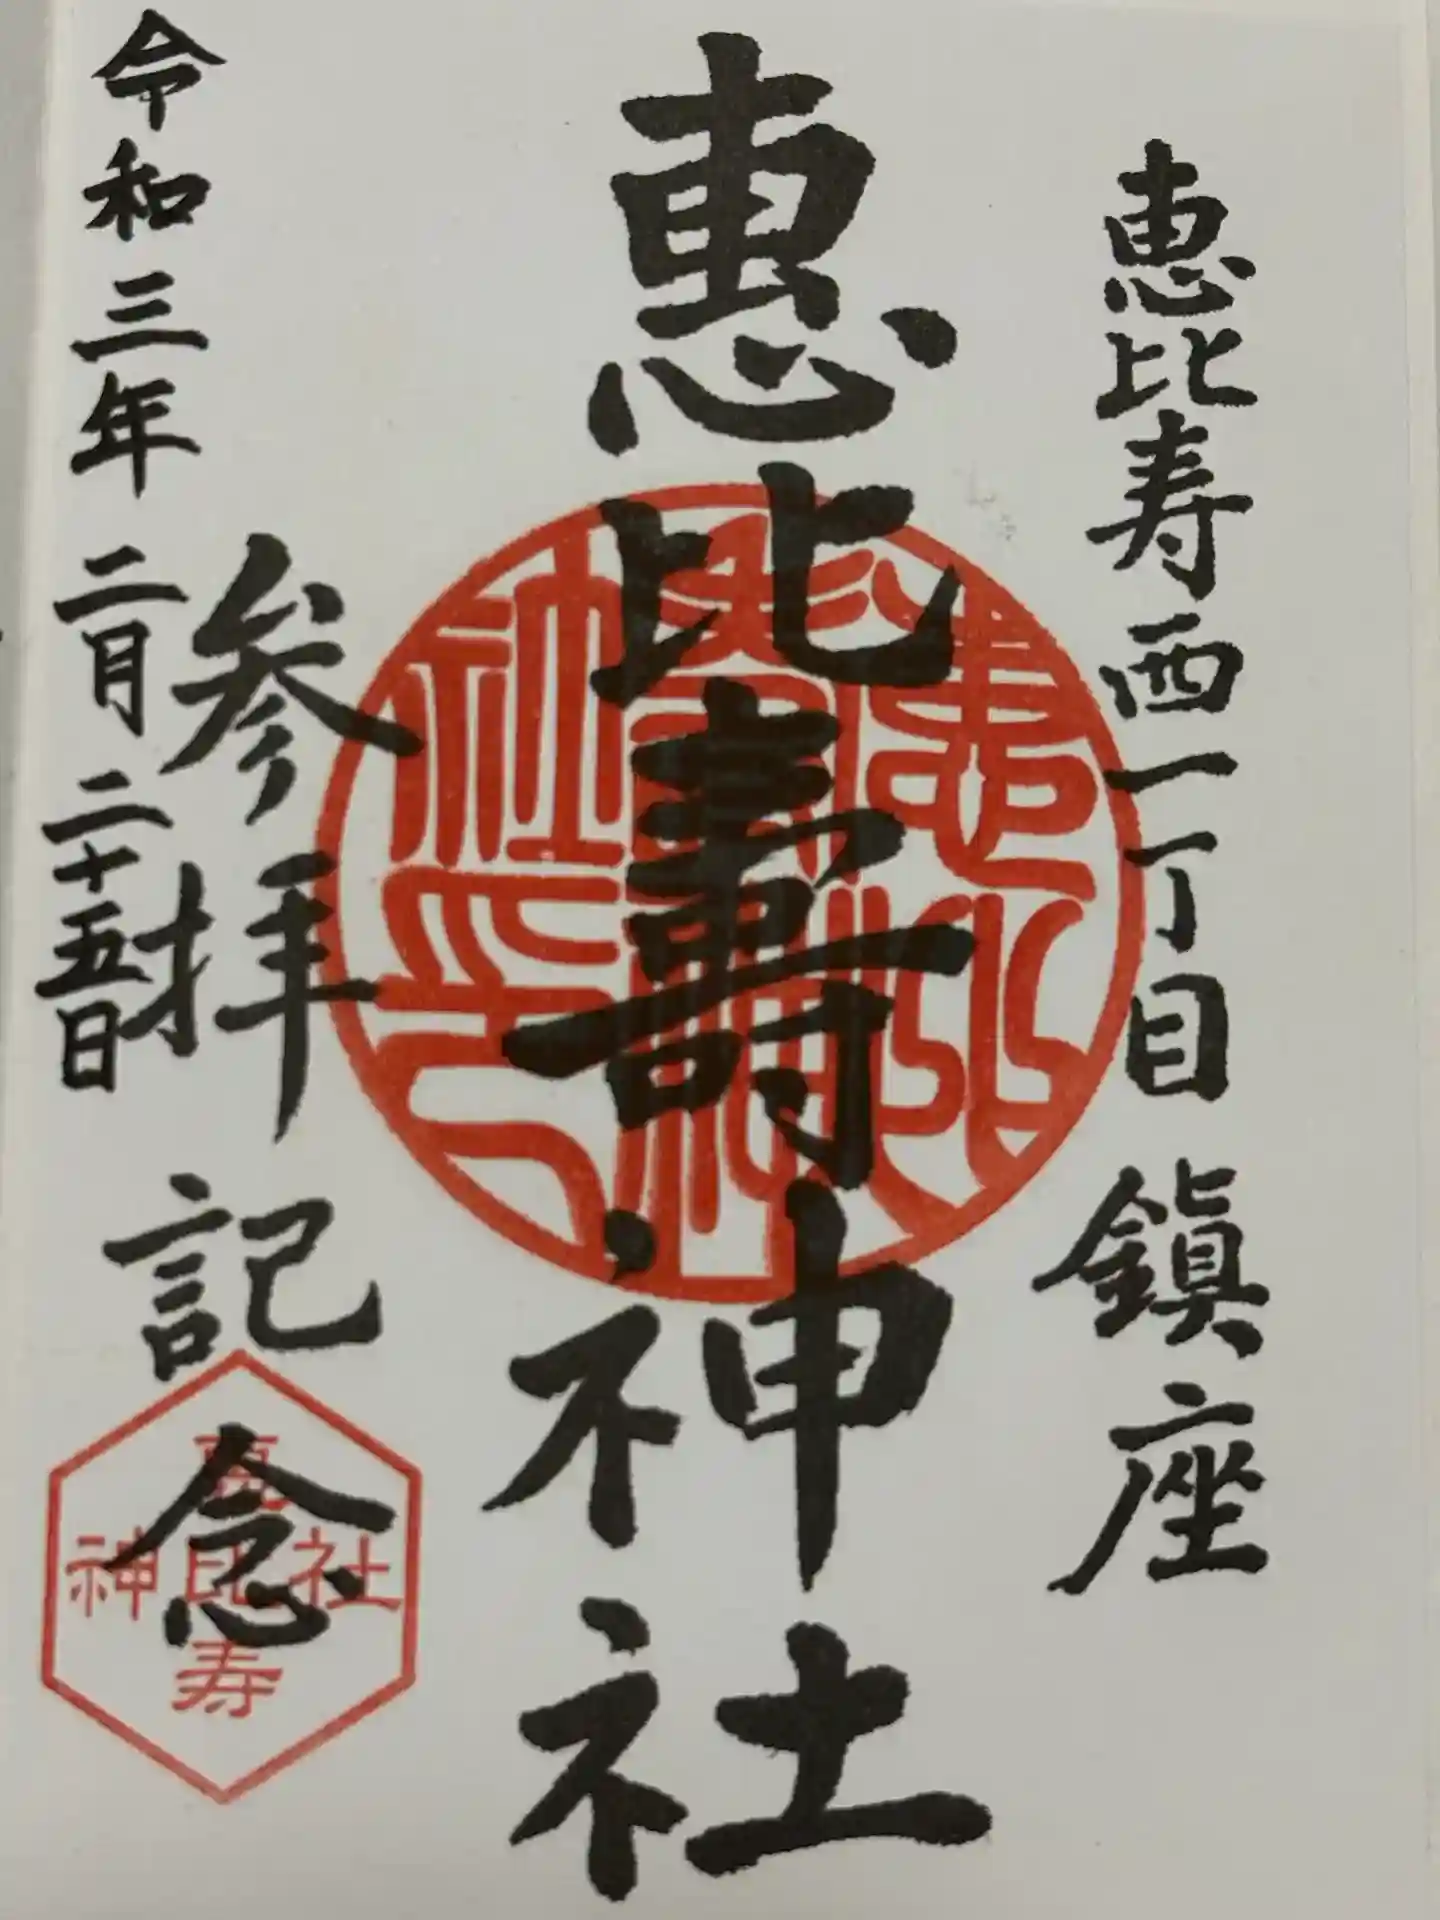 恵比寿西一丁目 鎮座
恵比壽神社
参拝記念
令和三年二月二十五日
恵比寿
神社